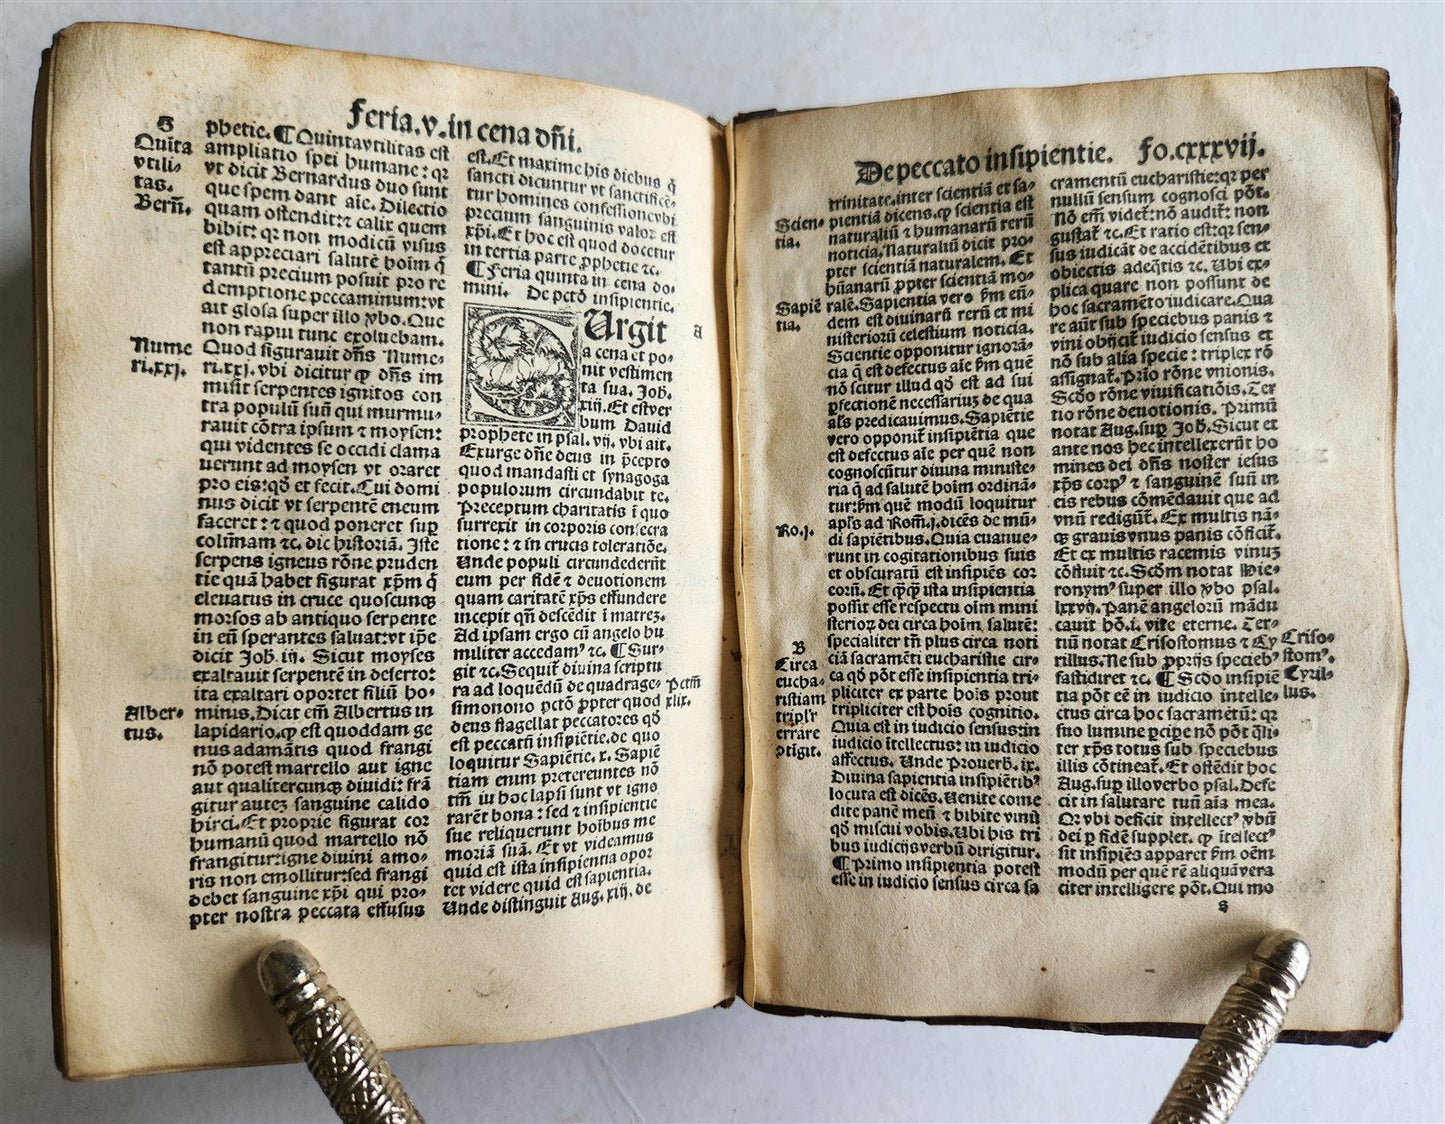 Feria.v.in cena dñi.
G
Quīta
vtili⸗
tas.
Berñ.
phetie.¶Quinta vtilitas est
ampliatio spei humane: qꝛ
vt dicit Bernardus duo sunt
que spem dant aīe. Dilectio
quam ostendit:⁊ calix quem
bibit: qꝛ non modicū visus
est appreciari salutē hoīm q̄
tantū precium posuit pro re
demptione peccaminum:vt
ait glosa super illo ꝟbo. Que
non rapui tunc exoluebam.
Nume
ri.xxj.
Quod figurauit dn̄s Nume⸗
ri.xxj. vbi dicitur ꝙ dn̄s im
misit serpentes ignitos con
tra populū suū qui murmu⸗
rauit cōtra ipsum ⁊ moysen:
qui videntes se occidi clama
uerunt ad moysen vt oraret
pro eis:qđ et fecit. Cui domi
nus dicit vt serpentē eneum
faceret: ⁊ quod poneret suꝑ
colūnam ⁊c. dic historiā. Iste
serpens igneus rōne pruden
tie quā habet figurat xp̄m q̄
eleuatus in cruce quoscunqꝫ
morsos ab antiquo serpente
in eū sperantes saluat:vt ip̄e
dicit Joh̄. iij. Sicut moyses
exaltauit serpentē in deserto:
ita exaltari oportet filiū ho⸗
Alber⸗
tus.
minis. Dicit em̄ Albertus in
lapidario.ꝙ est quoddam ge
nus adamātis quod frangi
nō potest martello aut igne
aut qualitercunqꝫ diuidi: frā
gitur autez sanguine calido
hirci. Et proprie figurat cor
humanū quod martello nō
frangitur:igne diuini amo⸗
ris non emollitur:sed frangi
debet sanguine xp̄i qui pro⸗
pter nostra peccata effusus
est. Et maxime his diebus q̄
sancti dicuntur vt sanctifice⸗
tur homines confessione vbi
precium sanguinis valor est
xp̄i. Et hoc est quod docetur
in tertia parte ꝓphetie ⁊c.
¶Feria quinta in cena do⸗
mini. De pctō insipientie.
a
SUrgit
a cena et po⸗
nit vestimen
ta sua. Joh̄.
xiij. Et est ver
bum Dauid
prophete in psal. vij. vbi ait.
Exurge dn̄e deus in p̄cepto
quod mandasti et synagoga
populorum circundabit te.
Preceptum charitatis ī quo
surrexit in corporis consecra
tione: ⁊ in crucis toleratiōe.
Unde populi circundederūt
eum per fidē ⁊ deuotionem
quam caritatē xp̄s effundere
incepit qn̄ descēdit ī matrez.
Ad ipsam ergo cū angelo hu
militer accedamꝰ ⁊c. ¶Sur⸗
git ⁊c. Sequit̄ diuina scriptu
ra ad loquēdū de quadrage⸗
Pctm̄
xlix.
simo nono pctō ꝓpter quod
deus flagellat peccatores qđ
est peccatū insipiētie.de quo
loquitur Sapiētie. x. Sapiē
tiam enim pretereuntes nō
tm̄ in hoc lapsi sunt vt igno
rarēt bona: sed ⁊ insipientie
sue reliquerunt hoībus me
moriā suā. Et vt videamus
quid est ista insipientia opor
tet videre quid est sapientia.
Unde distinguit Aug. xiij. de
De peccato insipientie. Fo.cxxxvij.
trinitate.inter scientiā et sa⸗
Scien⸗
tia.
pientiā dicens.ꝙ scientia est
naturaliū ⁊ humanarū rerū
noticia. Naturaliū dicit pro⸗
pter scientiā naturalem. Et
hūanarū ꝓpter scientiā mo⸗
Sapiē
tia.
ralē. Sapientia vero ẜm eū⸗
dem est diuinarū rerū et mi
nisteriorū celestium noticia.
Scientie opponitur ignorā⸗
cia q̄ est defectus aīe ẜm quē
nō scitur illud qđ est ad sui
ꝑfectionē necessariuz de qua
al̓s predicauimus. Sapiētie
vero opponit̄ insipiētia que
est defectus aīe per quē non
cognoscūtur diuina ministe⸗
ria q̄ ad salutē hoīm ordinā⸗
tur:ẜm quē modū loquitur
Ro.j.
apl̓s ad Rom̄.j. dicēs de mū⸗
di sapiētibus. Quia euanue⸗
runt in cogitationibus suis
et obscuratū est insipiēs cor
eorū. Et ꝙ̄ꝙ̄ ista insipientia
possit esse respectu oīm mini
steriorꝝ dei circa hoīm salutē:
B
Circa
eucha⸗
ristiam
tripl̓r
errare
ꝯtigit.
specialiter tn̄ plus circa noti
ciā sacramēti eucharistie cir⸗
ca qđ pōt esse insipientia tri⸗
pliciter ex parte hoīs prout
tripliciter est hoīs cognitio.
Quia est in iudicio sensus:in
iudicio ītellectus: in iudicio
affectus. Unde Prouerb̄. ix.
Diuina sapientia insipiētibꝰ
locuta est dicēs. Uenite come
dite panē meū ⁊ bibite vinū
qđ miscui vobis. Ubi his tri
bus iudicijs verbū dirigitur.
¶Primo insipientia potest
esse in iudicio sensus circa sa
cramentū eucharistie:qꝛ per
nullū sensum cognosci pōt.
Nō em̄ videt̄:nō audit̄: non
gustat̄ ⁊c. Et ratio est:qꝛ sen⸗
sus iudicāt de accidētibus et
obiectis adeq̄tis ⁊c. Ubi ex⸗
plica quare non possunt de
hoc sacramēto iudicare. Qua
re aūt sub speciebus panis ⁊
vini obijcit̄ iudicio sensus et
nō sub alia specie: triplex rō
assignat̄. Prīo rōne vnionis.
Scđo rōne viuificatiōis. Ter
tio rōne deuotionis. Primū
notat Aug. suꝑ Joh̄. Sicut et
ante nos hec intellexerūt ho
mines dei dn̄s noster iesus
xp̄s corpꝰ ⁊ sanguinē suū in
eis rebus cōmēdauit que ad
vnū redigūt̄. Ex multis nā⸗
qꝫ granis vnus panis cōficit̄.
Et ex multis racemis vinuz
cōfluit ⁊c. Scđm notat Hie⸗
ronymꝰ super illo ꝟbo psal.
lxxvij. Panē angelorū mādu
cauit hō.i. vite eterne. Ter⸗
Crisо⸗
stomꝰ.
Cyril⸗
lus.
tiū notat Crisostomus ⁊ Cy
rillus. Ne sub ꝓprijs speciebꝰ
fastidiret ⁊c. ¶Scđo insipiē
tia pōt eē in iudicio intelle⸗
ctus circa hoc sacramētū: qꝛ
suo lumine ꝑcipe nō pōt q̄li⸗
ter xp̄s totus sub speciebus
illis cōtineat̄. Et ostēdit hoc
Aug. suꝑ illo verbo psal. Defe
cit in salutare tuū aīa mea.
Qꝛ vbi deficit intellectꝰ ꝟbū
dei ꝑ fidē supplet. ꝙ ītellectꝰ
sit insipiēs apparet ẜm oēm
modū per quē rē aliquā vera
citer intelligere pōt. Qui mo
s